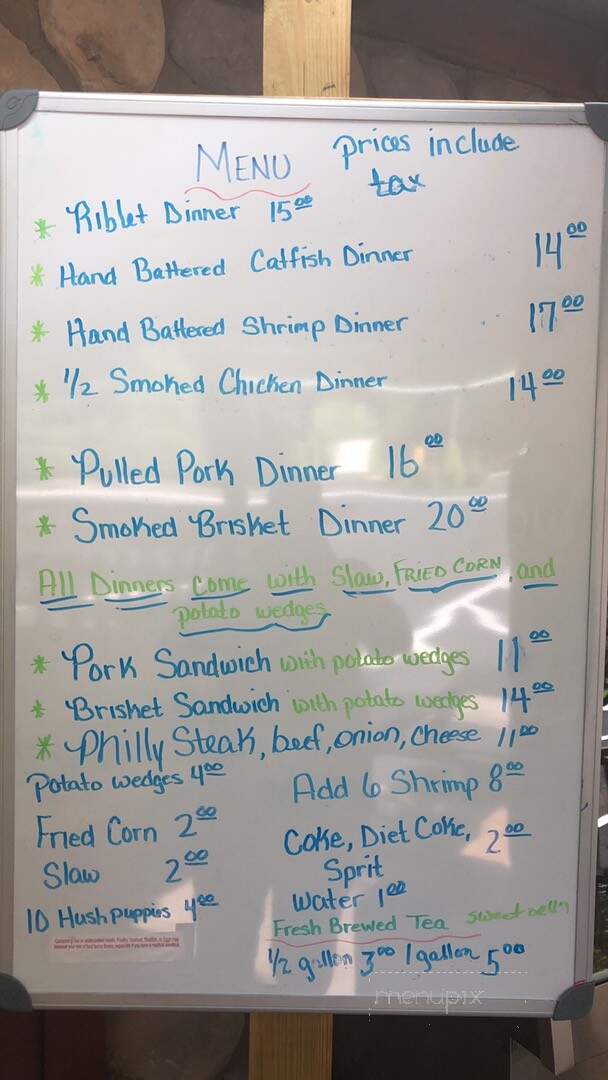 MENU prices include
tax
* Riblet Dinner 15.00
* Hand Battered Catfish Dinner 14.00
* Hand Battered Shrimp Dinner 17.00
* 1/2 Smoked Chicken Dinner 14.00
* Pulled Pork Dinner 16.00
* Smoked Brisket Dinner 20.00
All Dinners come with Slaw, FRIED CORN, and
potato wedges
* Pork Sandwich with potato wedges 11.00
* Brisket Sandwich with potato wedges 14.00
* Philly Steak, beef, onion, cheese 11.00
Potato wedges 4.00
Add 6 Shrimp 8.00
Fried Corn 2.00
Coke, Diet Coke, 2.00
Sprit
Slaw 2.00
Water 1.00
10 Hushpuppies 4.00
Fresh Brewed Tea sweet
1/2 gallon 3.00 1 gallon 5.00
menupix